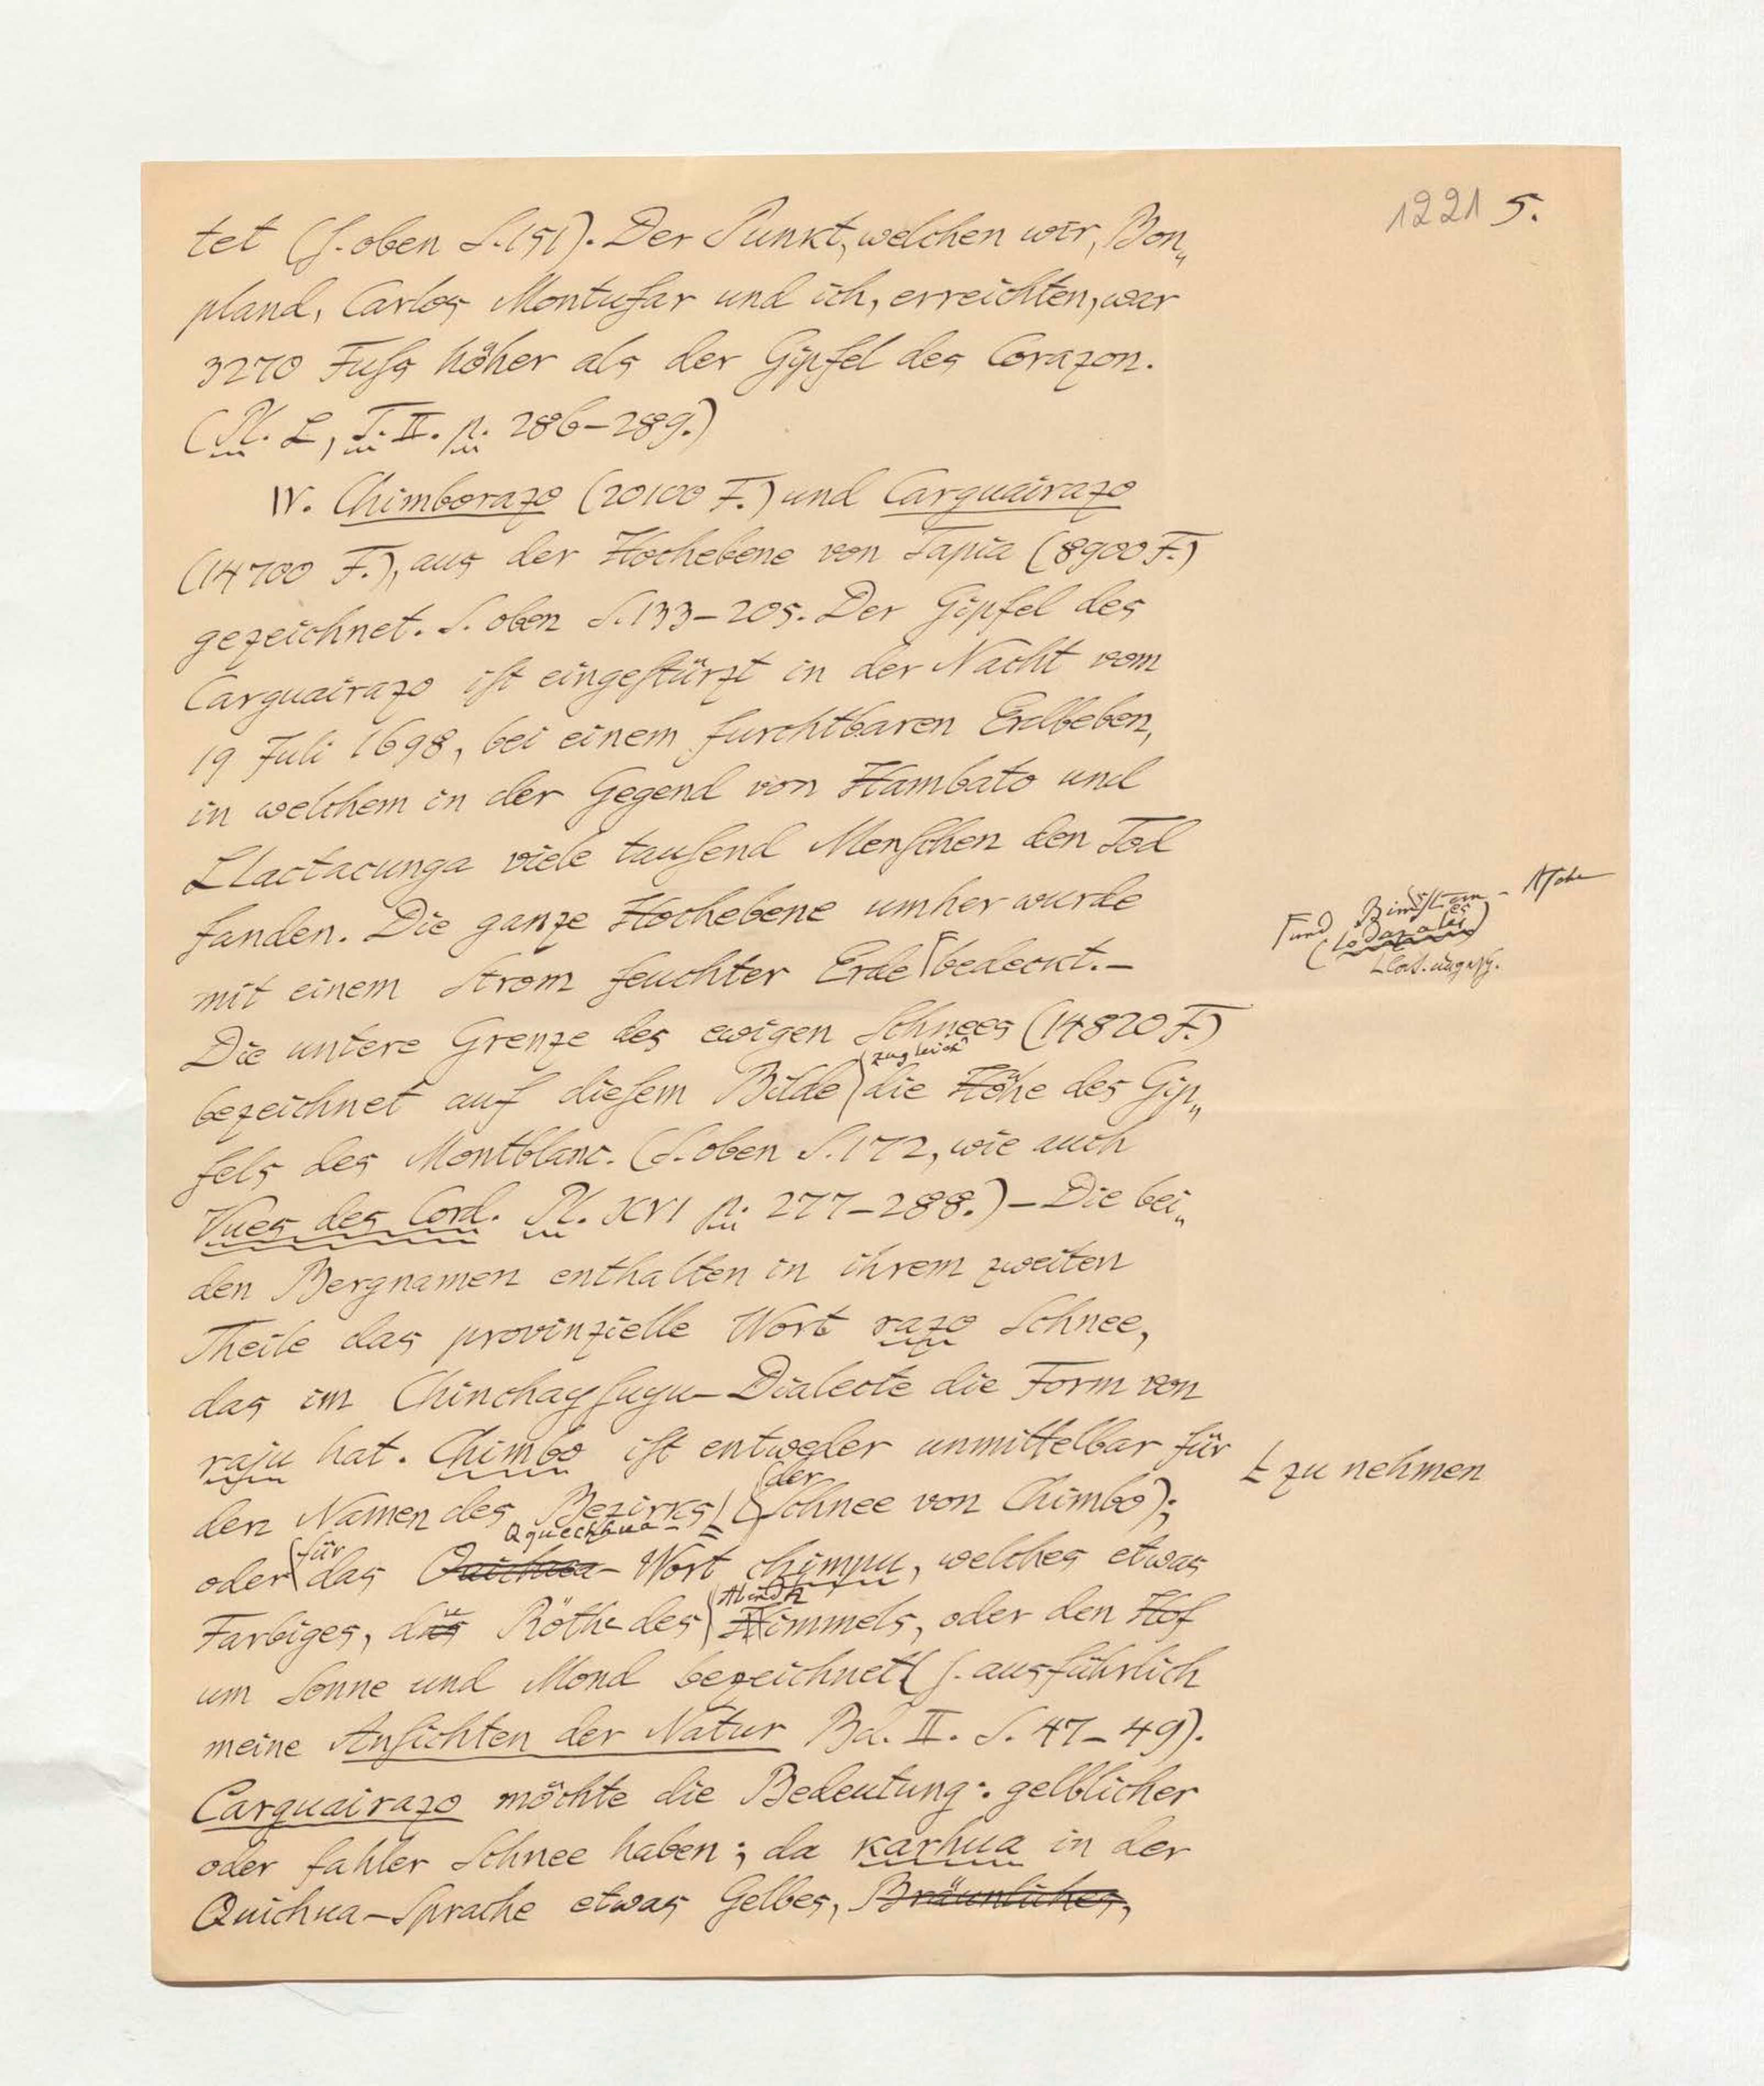 1221 5.
tet (s. oben S. 151). Der Punkt, welchen wir, Bon„
pland, Carlos Montufar und ich, erreichten, war
3270 Fuss höher als der Gipfel des Corazon.
(Pl. L, T. II. p. 286–289.)
IV. Chimborazo (20100 F.) und Carguairazo
(14700 F.), aus der Hochebene von Tapia (8900 F.)
gezeichnet. S. oben S. 133–205. Der Gipfel des
Carguairazo ist eingestürzt in der Nacht vom
19 Juli 1698, bei einem furchtbaren Erdbeben,
in welchem in der Gegend von Hambato und
Llactacunga viele tausend Menschen den Tod
fanden. Die ganze Hochebene umher wurde
mit einem Strom feuchter Erde ⌈bedeckt.–
⌈und Bimsstein-Asche
(lodazales)
Die untere Grenze des ewigen Schnees (14820 F.)
zugleich
bezeichnet auf diesem Bilde die Höhe des Gip„
fels des Montblanc. (S. oben S. 172, wie auch
Vues des Cord. Pl. XVI p. 277–288.) – Die bei„
den Bergnamen enthalten in ihrem zweiten
Theile das provinzielle Wort razo Schnee,
das im Chinchaysuyu-Dialecte die Form von
raju hat. Chimbo ist entweder unmittelbar für
Ł zu nehmen
der
den Namen des Bezirks Ł (Schnee von Chimbo);
für Qquechhua-
oder das Quichua-Wort chimpu, welches etwas
Abend
Farbiges, die Röthe des Himmels, oder den Hof
um Sonne und Mond bezeichnet (s. ausführlich
meine Ansichten der Natur Bd. II. S. 47–49).
Carguairazo möchte die Bedeutung: gelblicher
oder fahler Schnee haben; da karhua in der
Quichua-Sprache etwas Gelbes, Bräunliches,